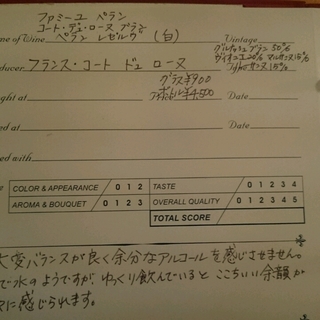 ファミーユ ペラン
コート・デュ・ローヌ ブラン
ペラン レゼルヴ (白)
me of Wine
Vintage
グルナッシュブラン 50%
ヴィオニエ 20% マルサンヌ 15%
ルーサンヌ 15%
ducer フランス・コート デュ ローヌ
グラス¥900
ボトル¥4,500
ght at
Price
ed at
ed with
COLOR & APPEARANCE 0 1 2
TASTE 0 1 2 3 4
AROMA & BOUQUET 0 1 2 3
OVERALL QUALITY 0 1 2 3 4 5
TOTAL SCORE
大変バランスが良く余分なアルコールを感じさせません。
で水のようですが、ゆっくり飲んでいると ここちいい余韻が
に感じられます。